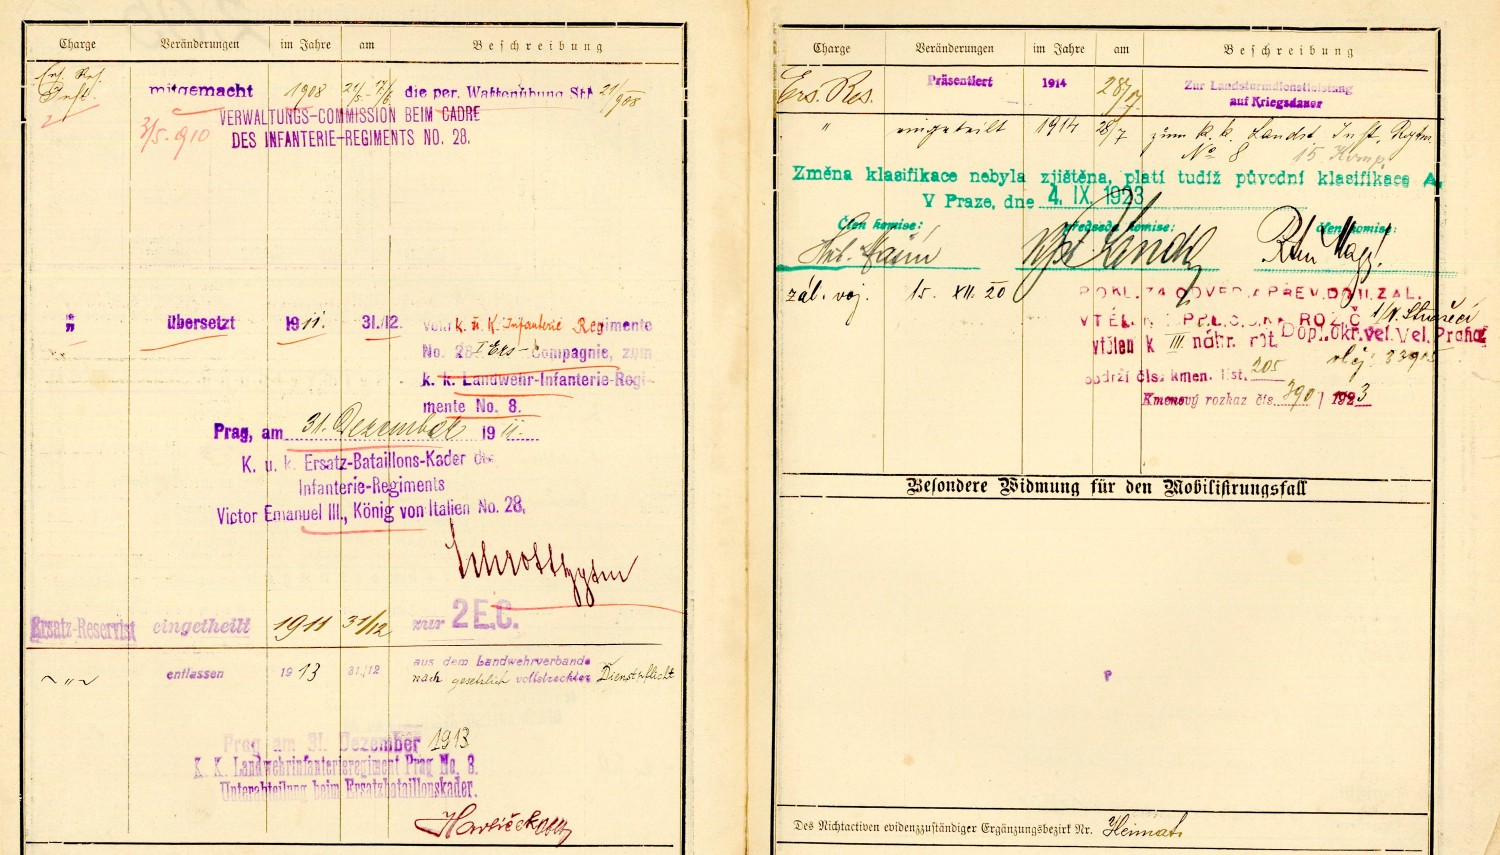 Charge Veränderungen im Jahre am Beschreibung
Ers. Res.
Inft. mitgemacht 1908 21/5 17/6 die per. Waffenübung St. 21/908
3/5. 910 VERWALTUNGS-COMMISSION BEIM CADRE
DES INFANTERIE-REGIMENTS NO. 28.
" übersetzt 1911. 31./12. vom k. u. k. Infanterie Regimente
No. 28 I Ers- Compagnie, zum
k. k. Landwehr-Infanterie-Regi-
mente No. 8.
Prag, am 31. Dezember 1911.
K. u. k. Ersatz-Bataillons-Kader des
Infanterie-Regiments
Victor Emanuel III., König von Italien No. 28.
Ersatz-Reservist eingetheilt 1911 31/12 zur 2 E.C.
~ " ~ entlassen 1913 31./12 aus dem Landwehrverbande
nach gesetzlich vollstreckter Dienstpflicht
Prag am 31. Dezember 1913
K. K. Landwehrinfanterieregiment Prag No. 8.
Unterabteilung beim Ersatzbataillonskader.
Havlíček
Charge Veränderungen im Jahre am Beschreibung
Ers. Res. Präsentiert 1914 28/7. Zur Landsturmdienstleistung
auf Kriegsdauer
" eingeteilt 1914 28/7 zum k. k. Landst. Inft. Regtm.
No 8 15 Komp.
Změna klasifikace nebyla zjištěna, platí tudíž původní klasifikace A.
V Praze, dne 4. IX. 1923
Člen komise: předseda komise: člen komise:
zál. voj. 15. XII. 20 POKL. ZA ODVED. A PŘEV. DO II. ZÁL.
VTĚL. ROZ. Č.
vtělen k III náhr. rot. Dopl. okr. vel. Praha
obdrží čís. kmen. list. 205
Kmenový rozkaz čís. 390 / 1923
Besondere Widmung für den Mobilisirungsfall
P
Des Nichtactiven evidenzzuständiger Ergänzungsbezirk Nr. Heimat.